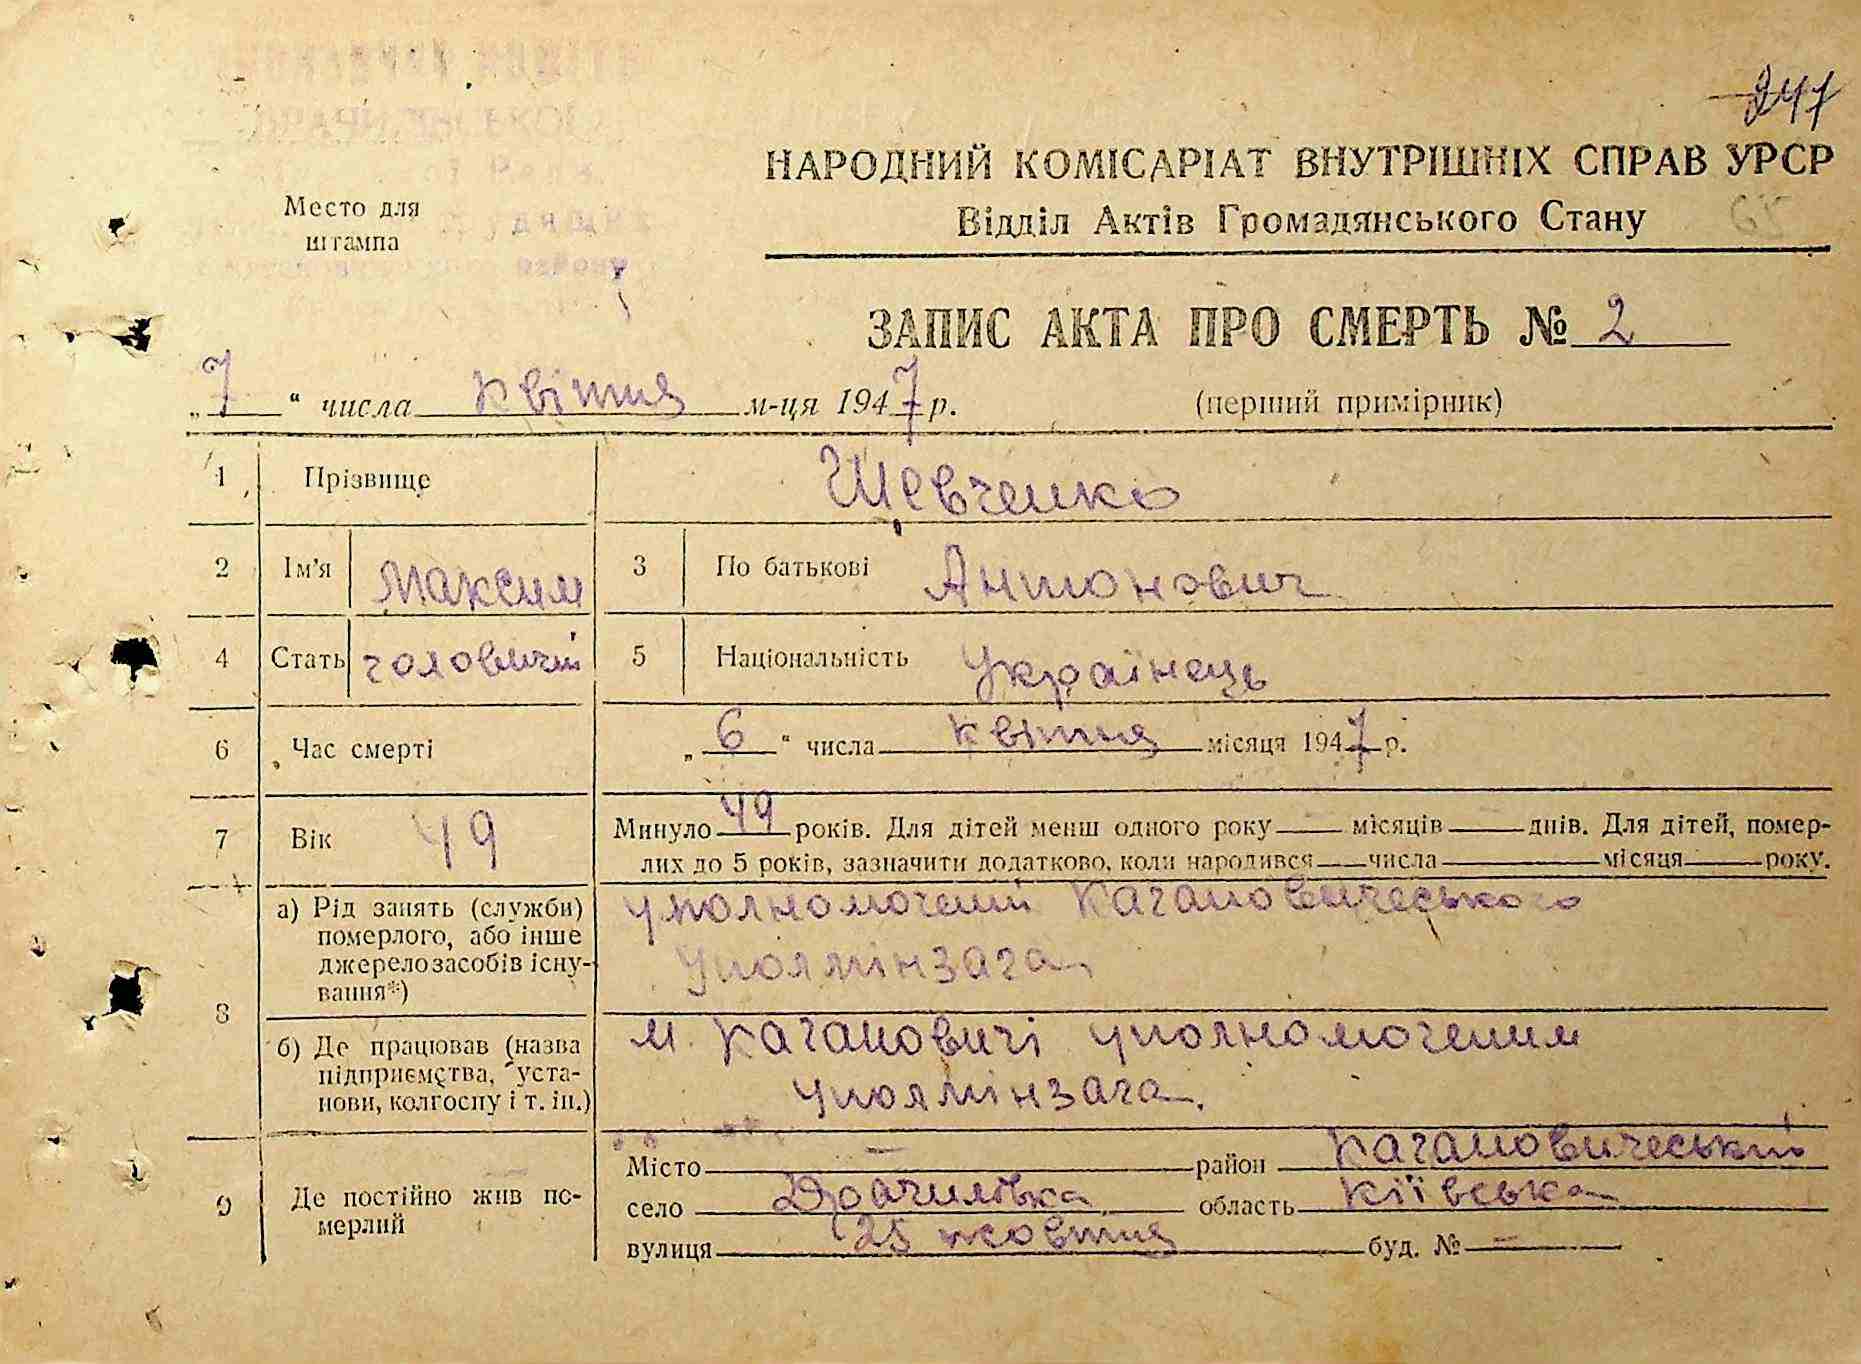 247
НАРОДНИЙ КОМІСАРІАТ ВНУТРІШНІХ СПРАВ УРСР
Место для
штампа
Відділ Актів Громадянського Стану
65
ЗАПИС АКТА ПРО СМЕРТЬ № 2
„ 7 “ числа квітня м-ця 1947 р. (перший примірник)
1 Прізвище Шевченко
2 Ім'я Максим 3 По батькові Антонович
4 Стать чоловичий 5 Національність Українець
6 Час смерті „ 6 “ числа квітня місяця 1947 р.
7 Вік 49 Минуло 49 років. Для дітей менш одного року — місяців — днів. Для дітей, помер-
лих до 5 років, зазначити додатково, коли народився — числа — місяця — року.
8 а) Рід занять (служби) померлого, або інше джерело засобів існу-вання*) уполномочений Кагановичеського
Уполмінзага
б) Де працював (назва підприємства, уста-нови, колгоспу і т. ін.) м. Кагановичі уполномоченим
Уполмінзага.
9 Де постійно жив по-мерлий Місто — район Кагановичеський
село область Кіївська
вулиця 25 жовтня буд. № —